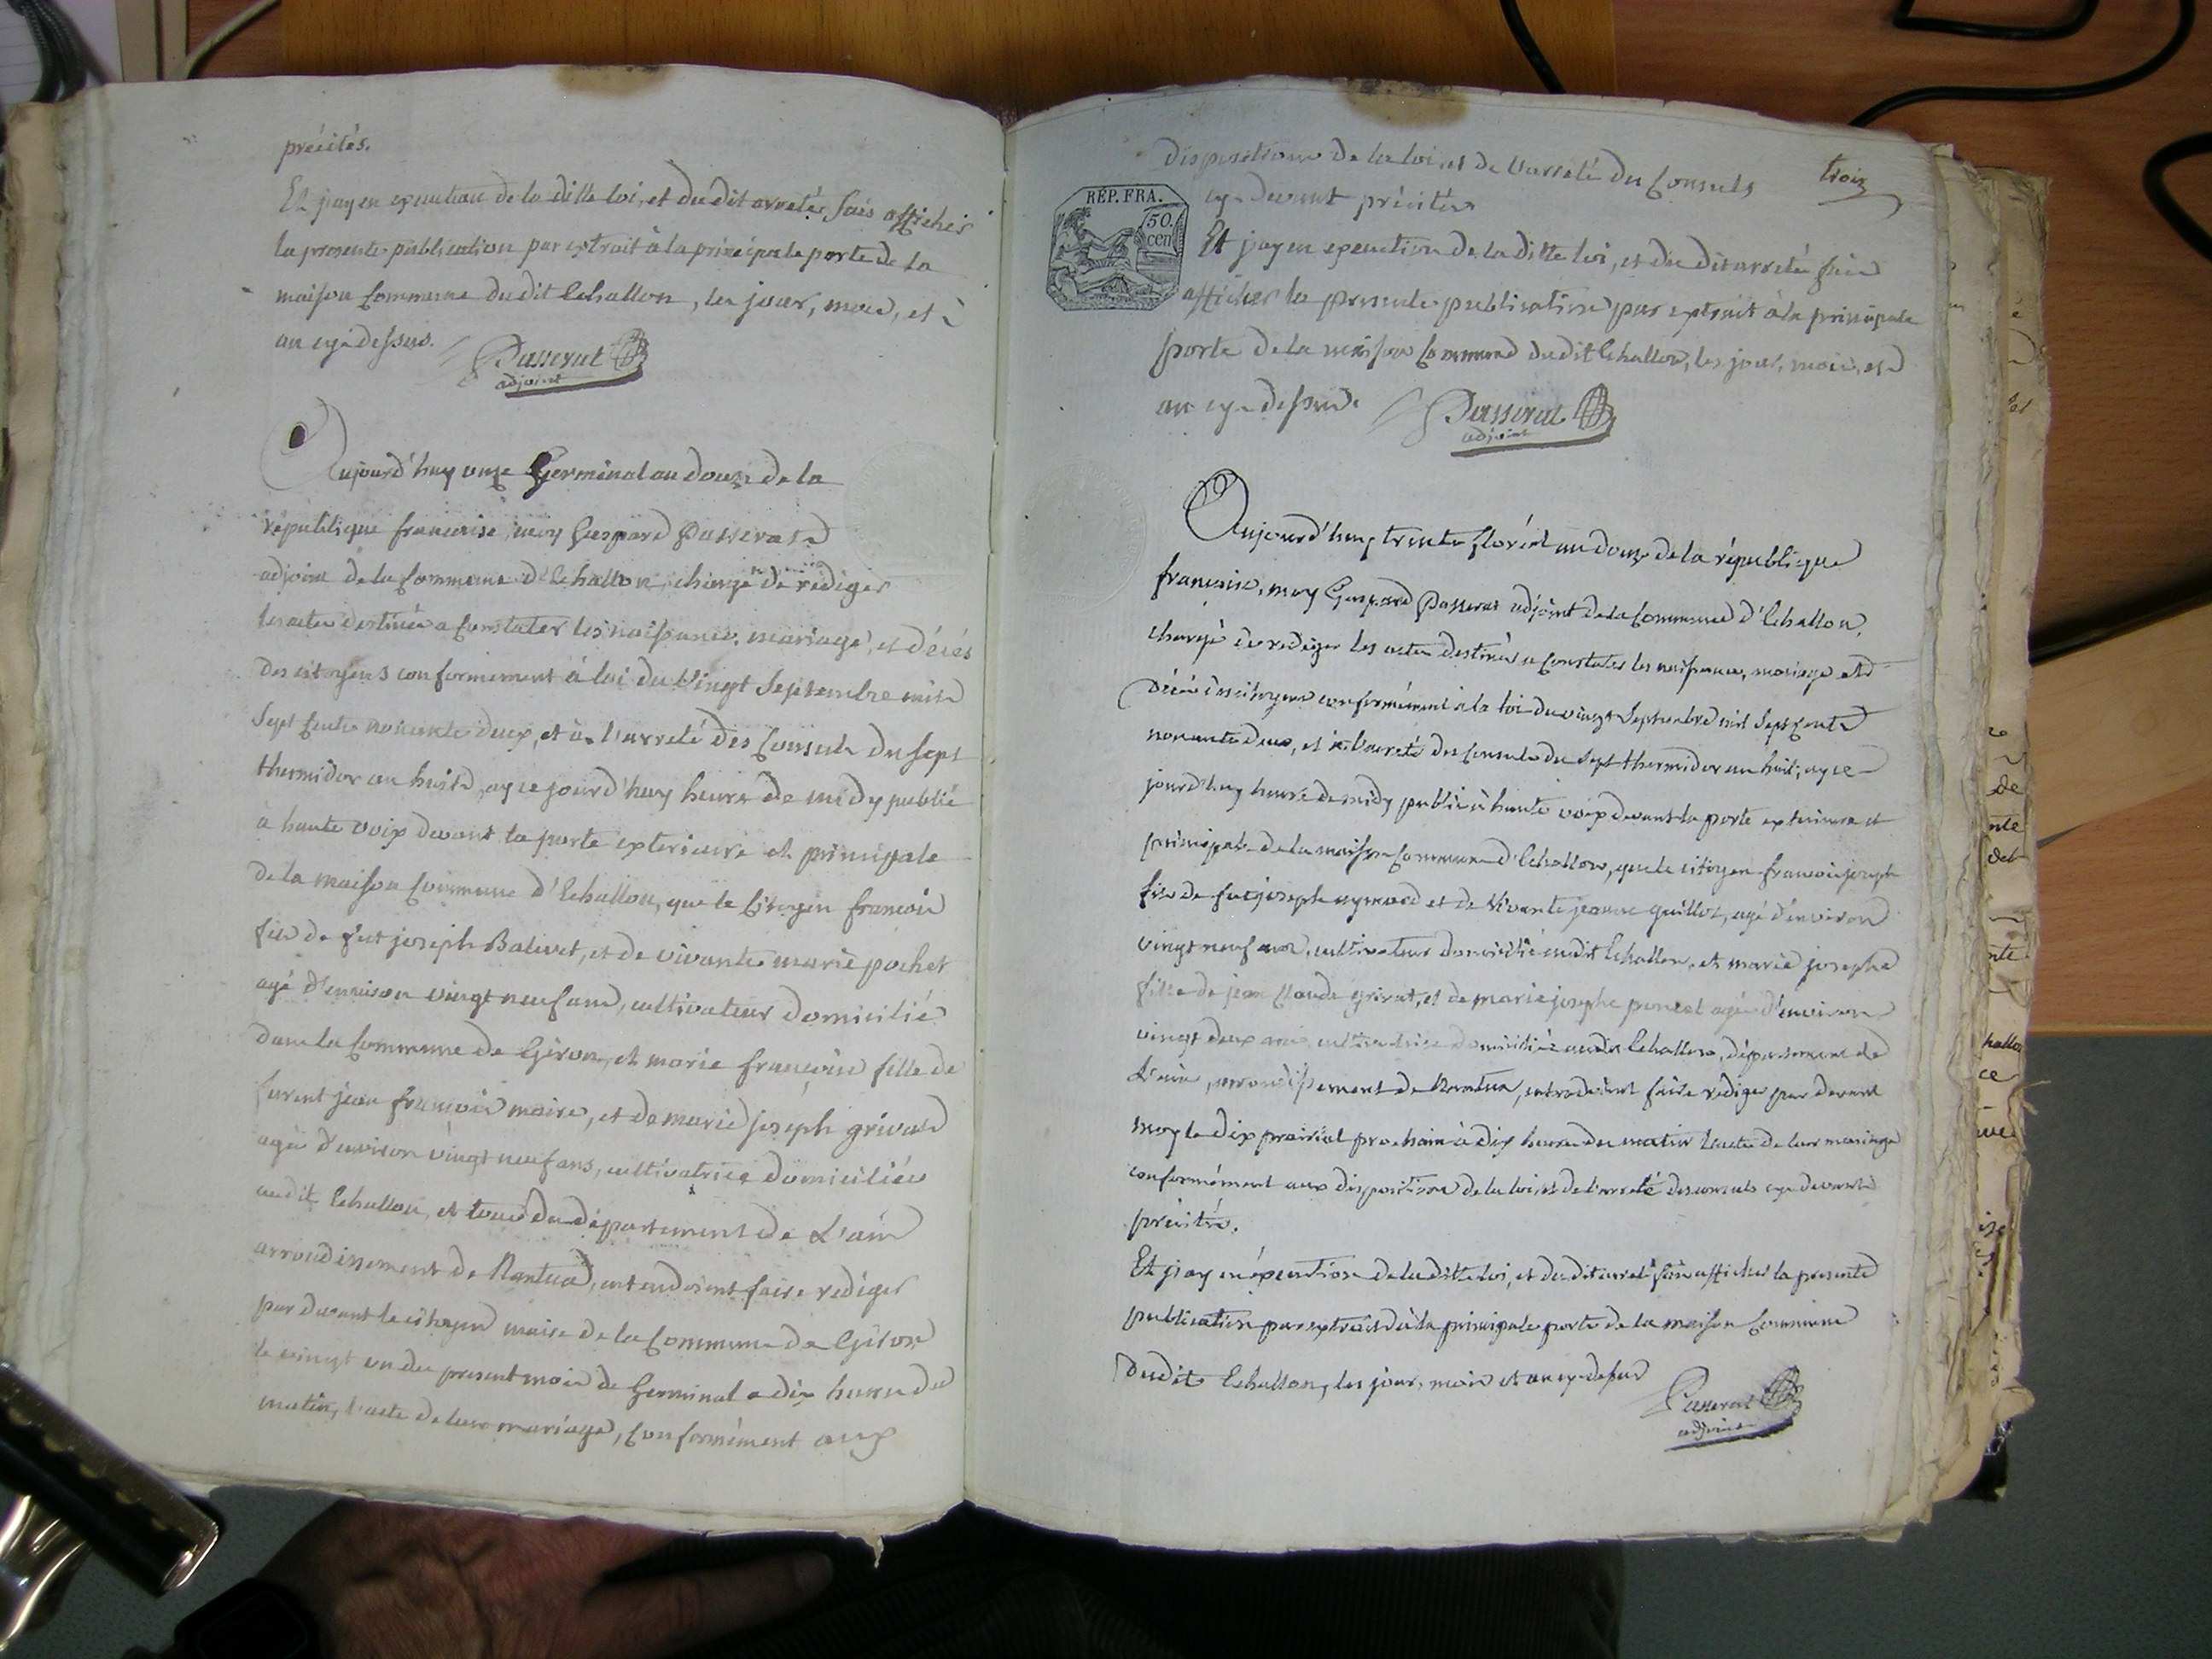 précités.
Et j'ay en execution de la ditte loi, et du dit arretés, fais afficher
la presente publication par extrait à la principale porte de la
maison Commune du dit Echallon, les jour, mois, et
an cy-dessus. Passerat
adjoint
Aujourd'huy onze Germinal an douze de la
république francaise, moy Gaspard Passerat
adjoint de la Commune d'Echallon, chargé de rediger
les actes destinés a Constater les naissances, mariage, et décés
des citoyens conformement à loi du Vingt Septembre mil
Sept Cents nonante deux, et à l'arreté des Consuls du Sept
thermidor an huit, ay ce jourd'huy heure de midy publié
à haute voix devant la porte exterieure et principale
de la maison Commune d'Echallon, que le Citoyen francois
fils de fut joseph Balivet, et de vivante marie pochet
agé d'environ vingt neuf ans, cultivateur domicilié
dans la Commune de Giron, et marie françoise fille de
furent jean françois maire, et de marie joseph grivat
agée d'environ vingt neuf ans, cultivatrice domiciliée
audit Echallon, et tous du département de L'ain
arrondissement de Nantua, entendoient faire rediger
par devant le citoyen maire de la Commune de Giron
le vingt un du present mois de Germinal a dix heures du
matin, l'acte de leur mariage, Conformément aux
dispositions de la loi et de l'arreté des Consuls trois
cy-devant précités
RÉP. FRA.
50.
cen
Et j'ay en execution de la ditte loi, et du dit arreté fais
afficher la presente publication par extrait à la principale
porte de la maison Commune dudit Echallon, les jour, mois, et
an cy-dessus. Passerat
adjoint
Aujourd'huy trente floréal an douze de la république
francaise, moy Gaspard Passerat adjoint de la Commune d'Echallon,
chargé de rediger les actes destinés a Constater les naissances, mariage et
décés des citoyens conformément à la loi du vingt Septembre mil Sept Cents
nonante deux, et à l'arreté des Consuls du Sept thermidor an huit, ay ce
jourd'huy heure de midy publié à haute voix devant la porte exterieure et
principale de la maison Commune d'Echallon, que le citoyen francois joseph
fils de fut joseph aymard et de Vivante jeanne guillot, agé d'environ
vingt neuf ans, cultivateur domicilié audit Echallon, et marie josephe
fille de jean Claude grivat, et de marie josephe poncet agée d'environ
vingt deux ans, cultivatrice domiciliée audit Echallon, département de
L'ain, arrondissement de Nantua, entendoient faire rediger par devant
moy le dix prairial prochain à dix heures du matin l'acte de leur mariage
conformément aux dispositions de la loi et de l'arreté des consuls cy-devant
précités.
Et j'ay en execution de la ditte loi, et du dit arreté fais afficher la presente
publication par extrait à la principale porte de la maison Commune
dudit Echallon, les jour, mois et an cy-dessus
Passerat
adjoint